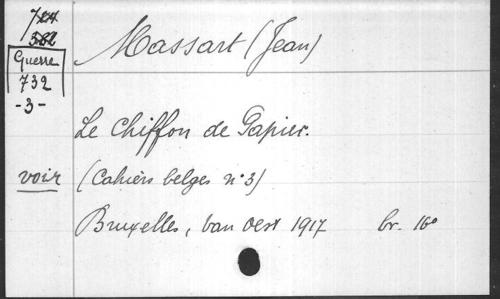 Massart (Jean)
Guerre
732
-3-
Le Chiffon de Papier.
voir (Cahiers belges n°3)
Bruxelles, van Oest 1917 br. 16°